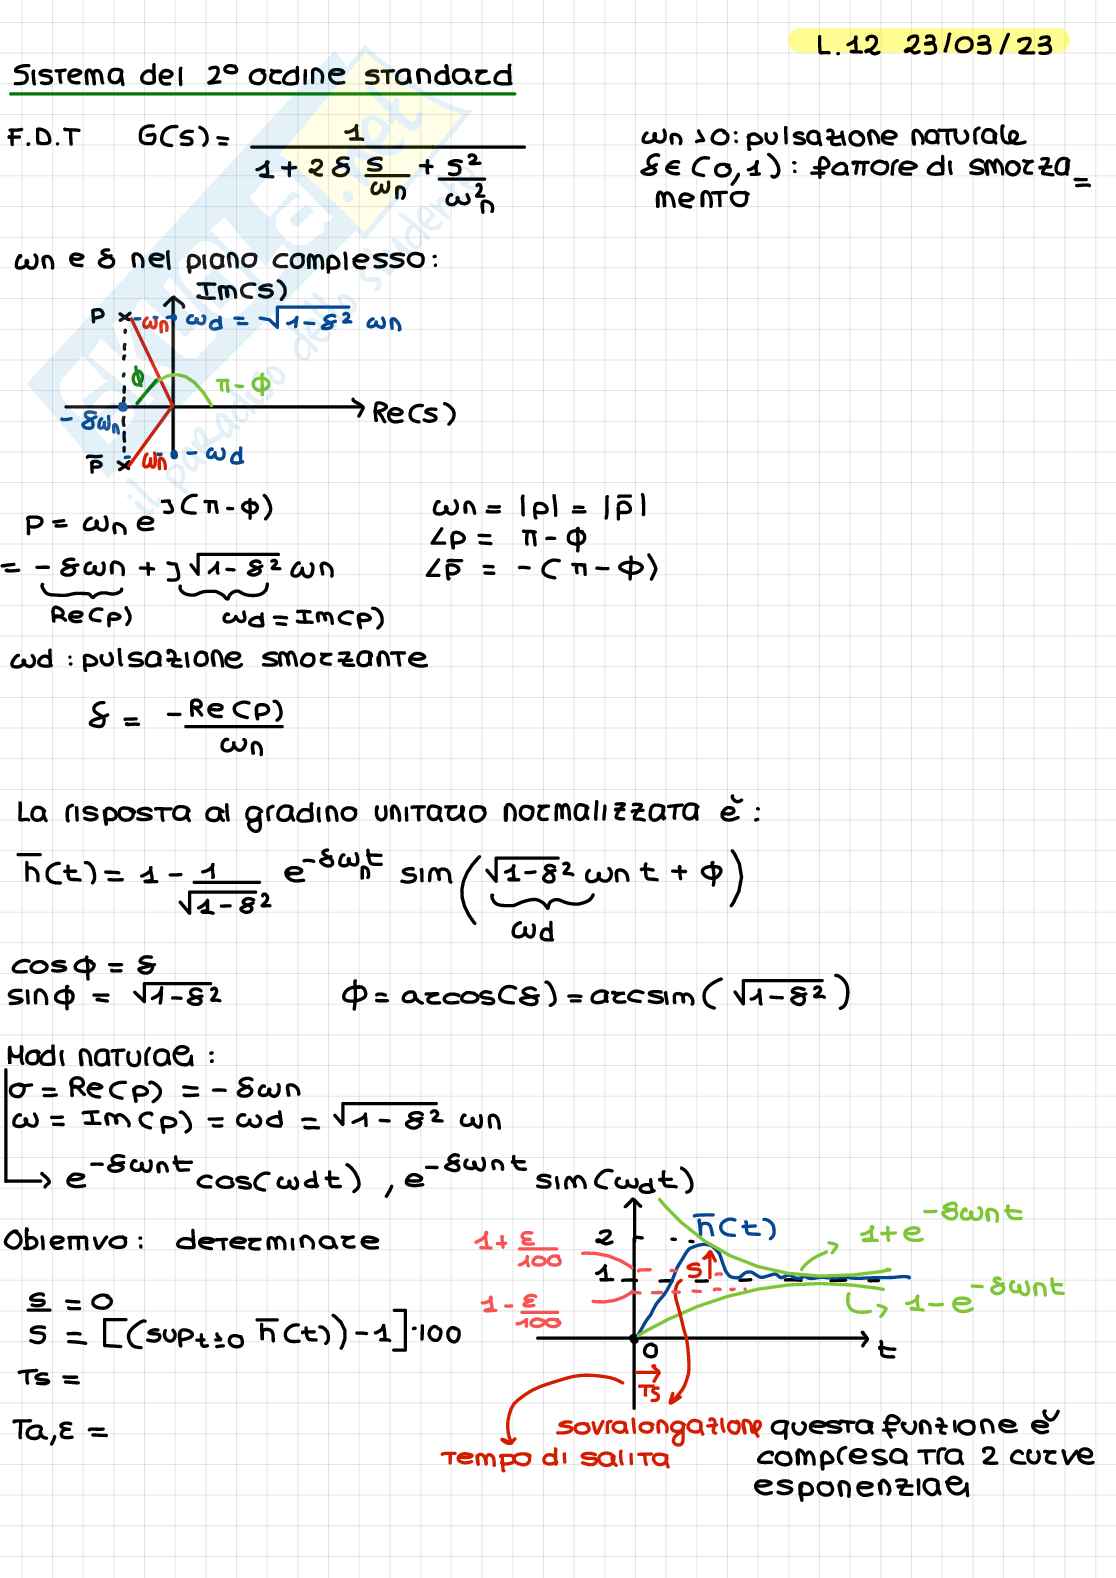 L.12 23/03/23
Sistema del 2° ordine standard
F.D.T G(s) = 1 / (1 + 2 δ s/ωn + s²/ω²n)
ωn > 0: pulsazione naturale
δ ∈ (0,1): fattore di smorza=
mento
ωn e δ nel piano complesso:
Im(s)
p ωn ωd = √1-δ² ωn
ϕ π-ϕ
Re(s)
-δωn
p̅ ωn -ωd
p = ωn e^J(π-ϕ)
ωn = |p| = |p̅|
∠p = π-ϕ
= -δωn + J√1-δ² ωn
∠p̅ = -(π-ϕ)
Re(p) ωd = Im(p)
ωd : pulsazione smorzante
δ = -Re(p)/ωn
La risposta al gradino unitario normalizzata è:
h̅(t) = 1 - 1/√1-δ² e^-δωnt sim(√1-δ² ωn t + ϕ)
ωd
cosϕ = δ
sinϕ = √1-δ² ϕ = arcos(δ) = arcsim(√1-δ²)
Modi naturali:
σ = Re(p) = -δωn
ω = Im(p) = ωd = √1-δ² ωn
→ e^-δωnt cos(ωdt), e^-δωnt sim(ωdt)
Obiettivo: determinare
s/s = 0
S = [(sup t≥0 h̅(t)) - 1]·100
Ts =
Ta,ε =
h̅(t)
1+e^-δωnt
1+ε/100
2
1
S
1-ε/100
1-e^-δωnt
0
t
Ts
sovralongazione
tempo di salita
questa funzione è
compresa tra 2 curve
esponenziali
SKUOLA.net
il paradiso dello studente